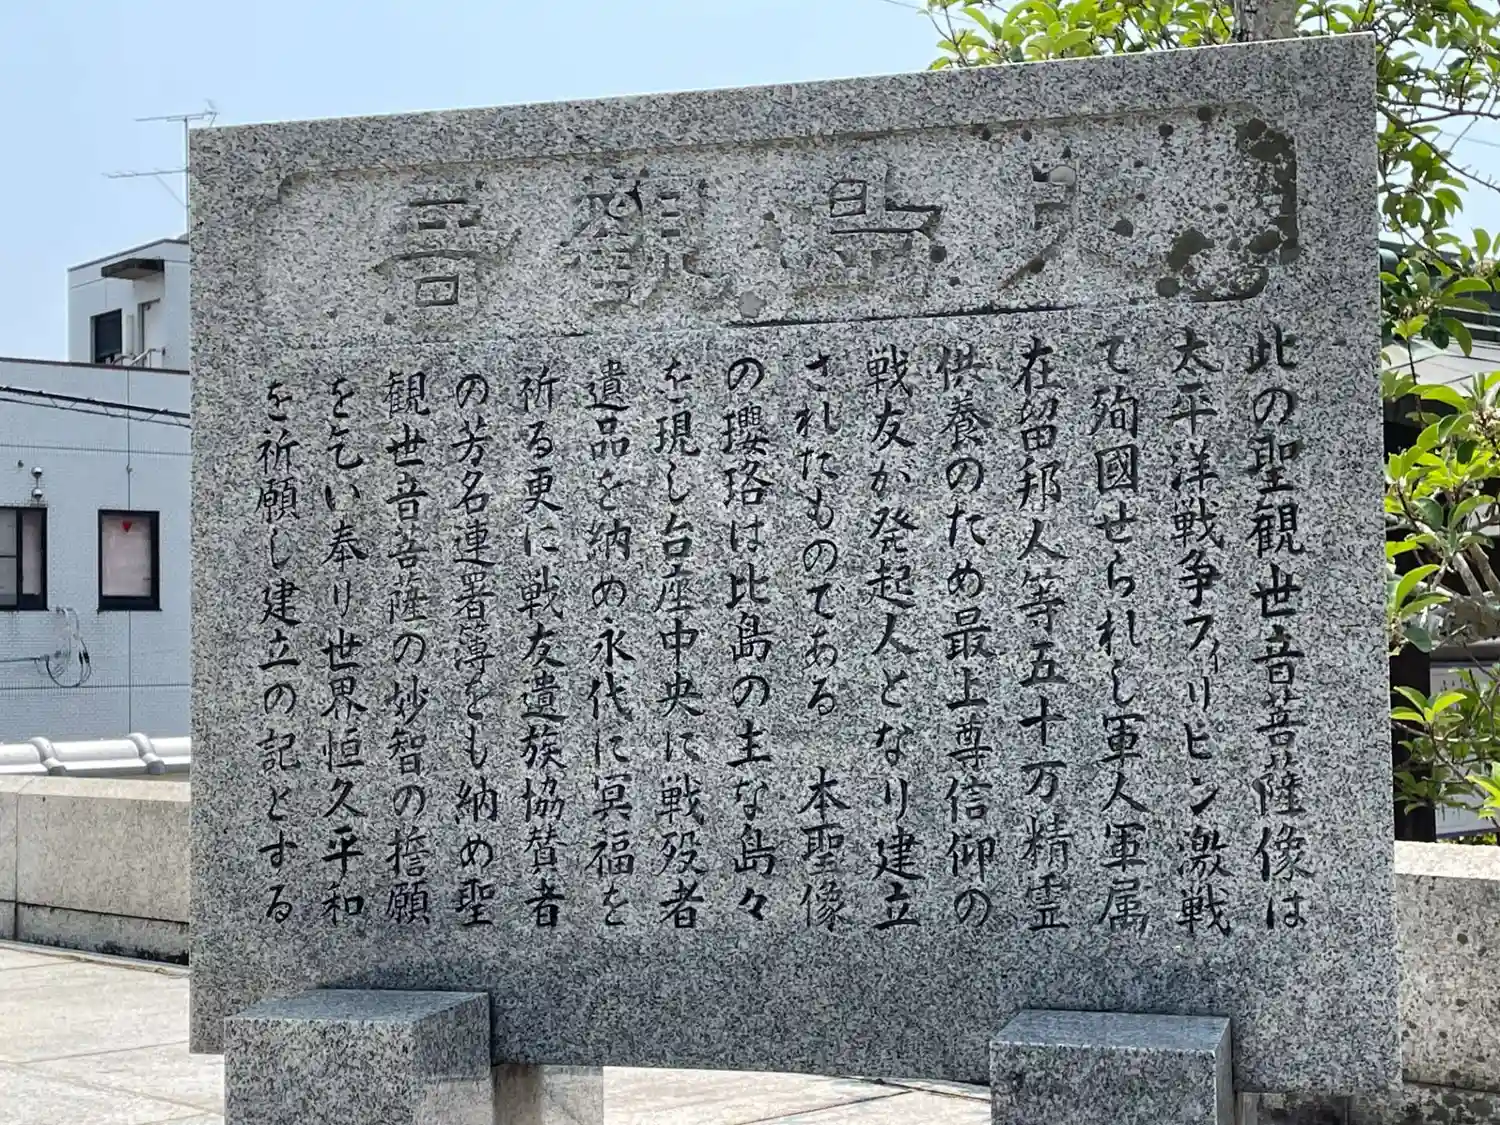 比島観音
此の聖観世音菩薩像は
太平洋戦争フィリピン激戦
て殉國せられし軍人軍属
在留邦人等五十万精霊
供養のため最上尊信仰の
戦友が発起人となり建立
されたものである 本聖像
の瓔珞は比島の主な島々
を現し台座中央に戦歿者
遺品を納め永代に冥福を
祈る更に戦友遺族協賛者
の芳名連署簿をも納め聖
観世音菩薩の妙智の誓願
を乞い奉り世界恒久平和
を祈願し建立の記とする